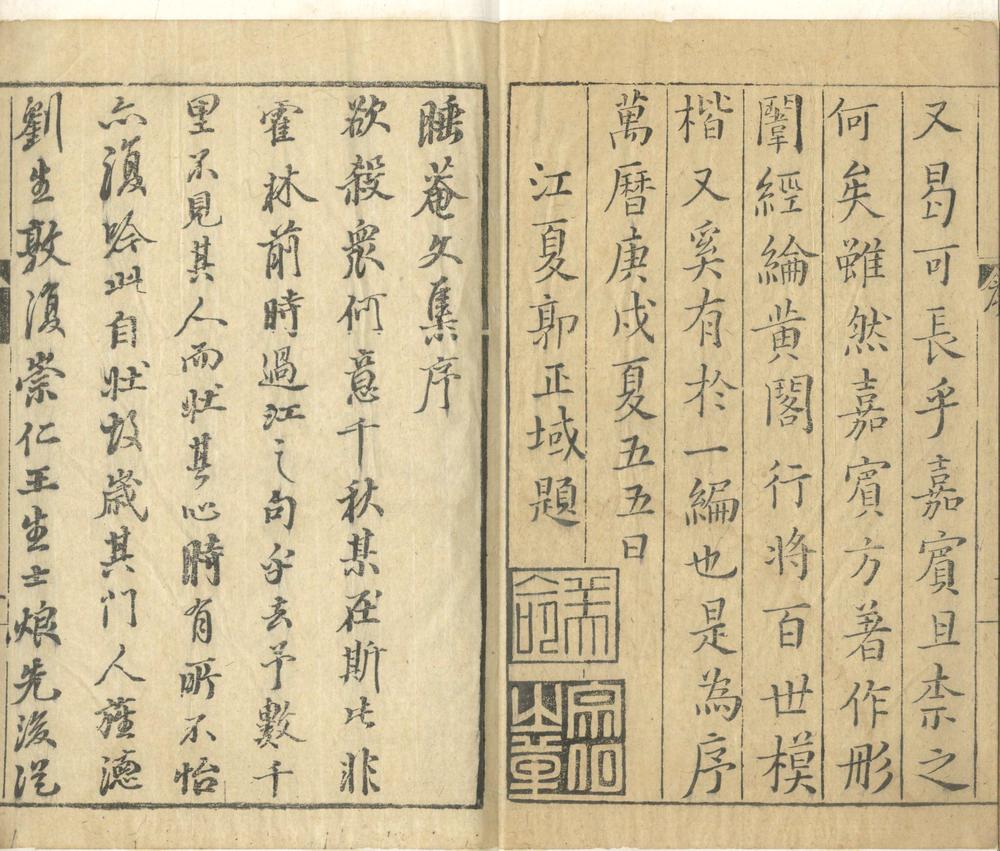 又曷可長乎嘉賓且柰之
何矣雖然嘉賓方著作彤
闈經綸黄閣行将百世模
楷又奚有於一編也是為序
萬曆庚戍夏五五日
江夏郭正域題
序
睡菴文集序
欲殺衆何意千秋某在斯此非
霍林前時過江之句乎去予數千
里不見其人而壯其心時有所不怡
亦復吟此自壯故歲其門人旌德
劉生敦復崇仁王生士烺先後従